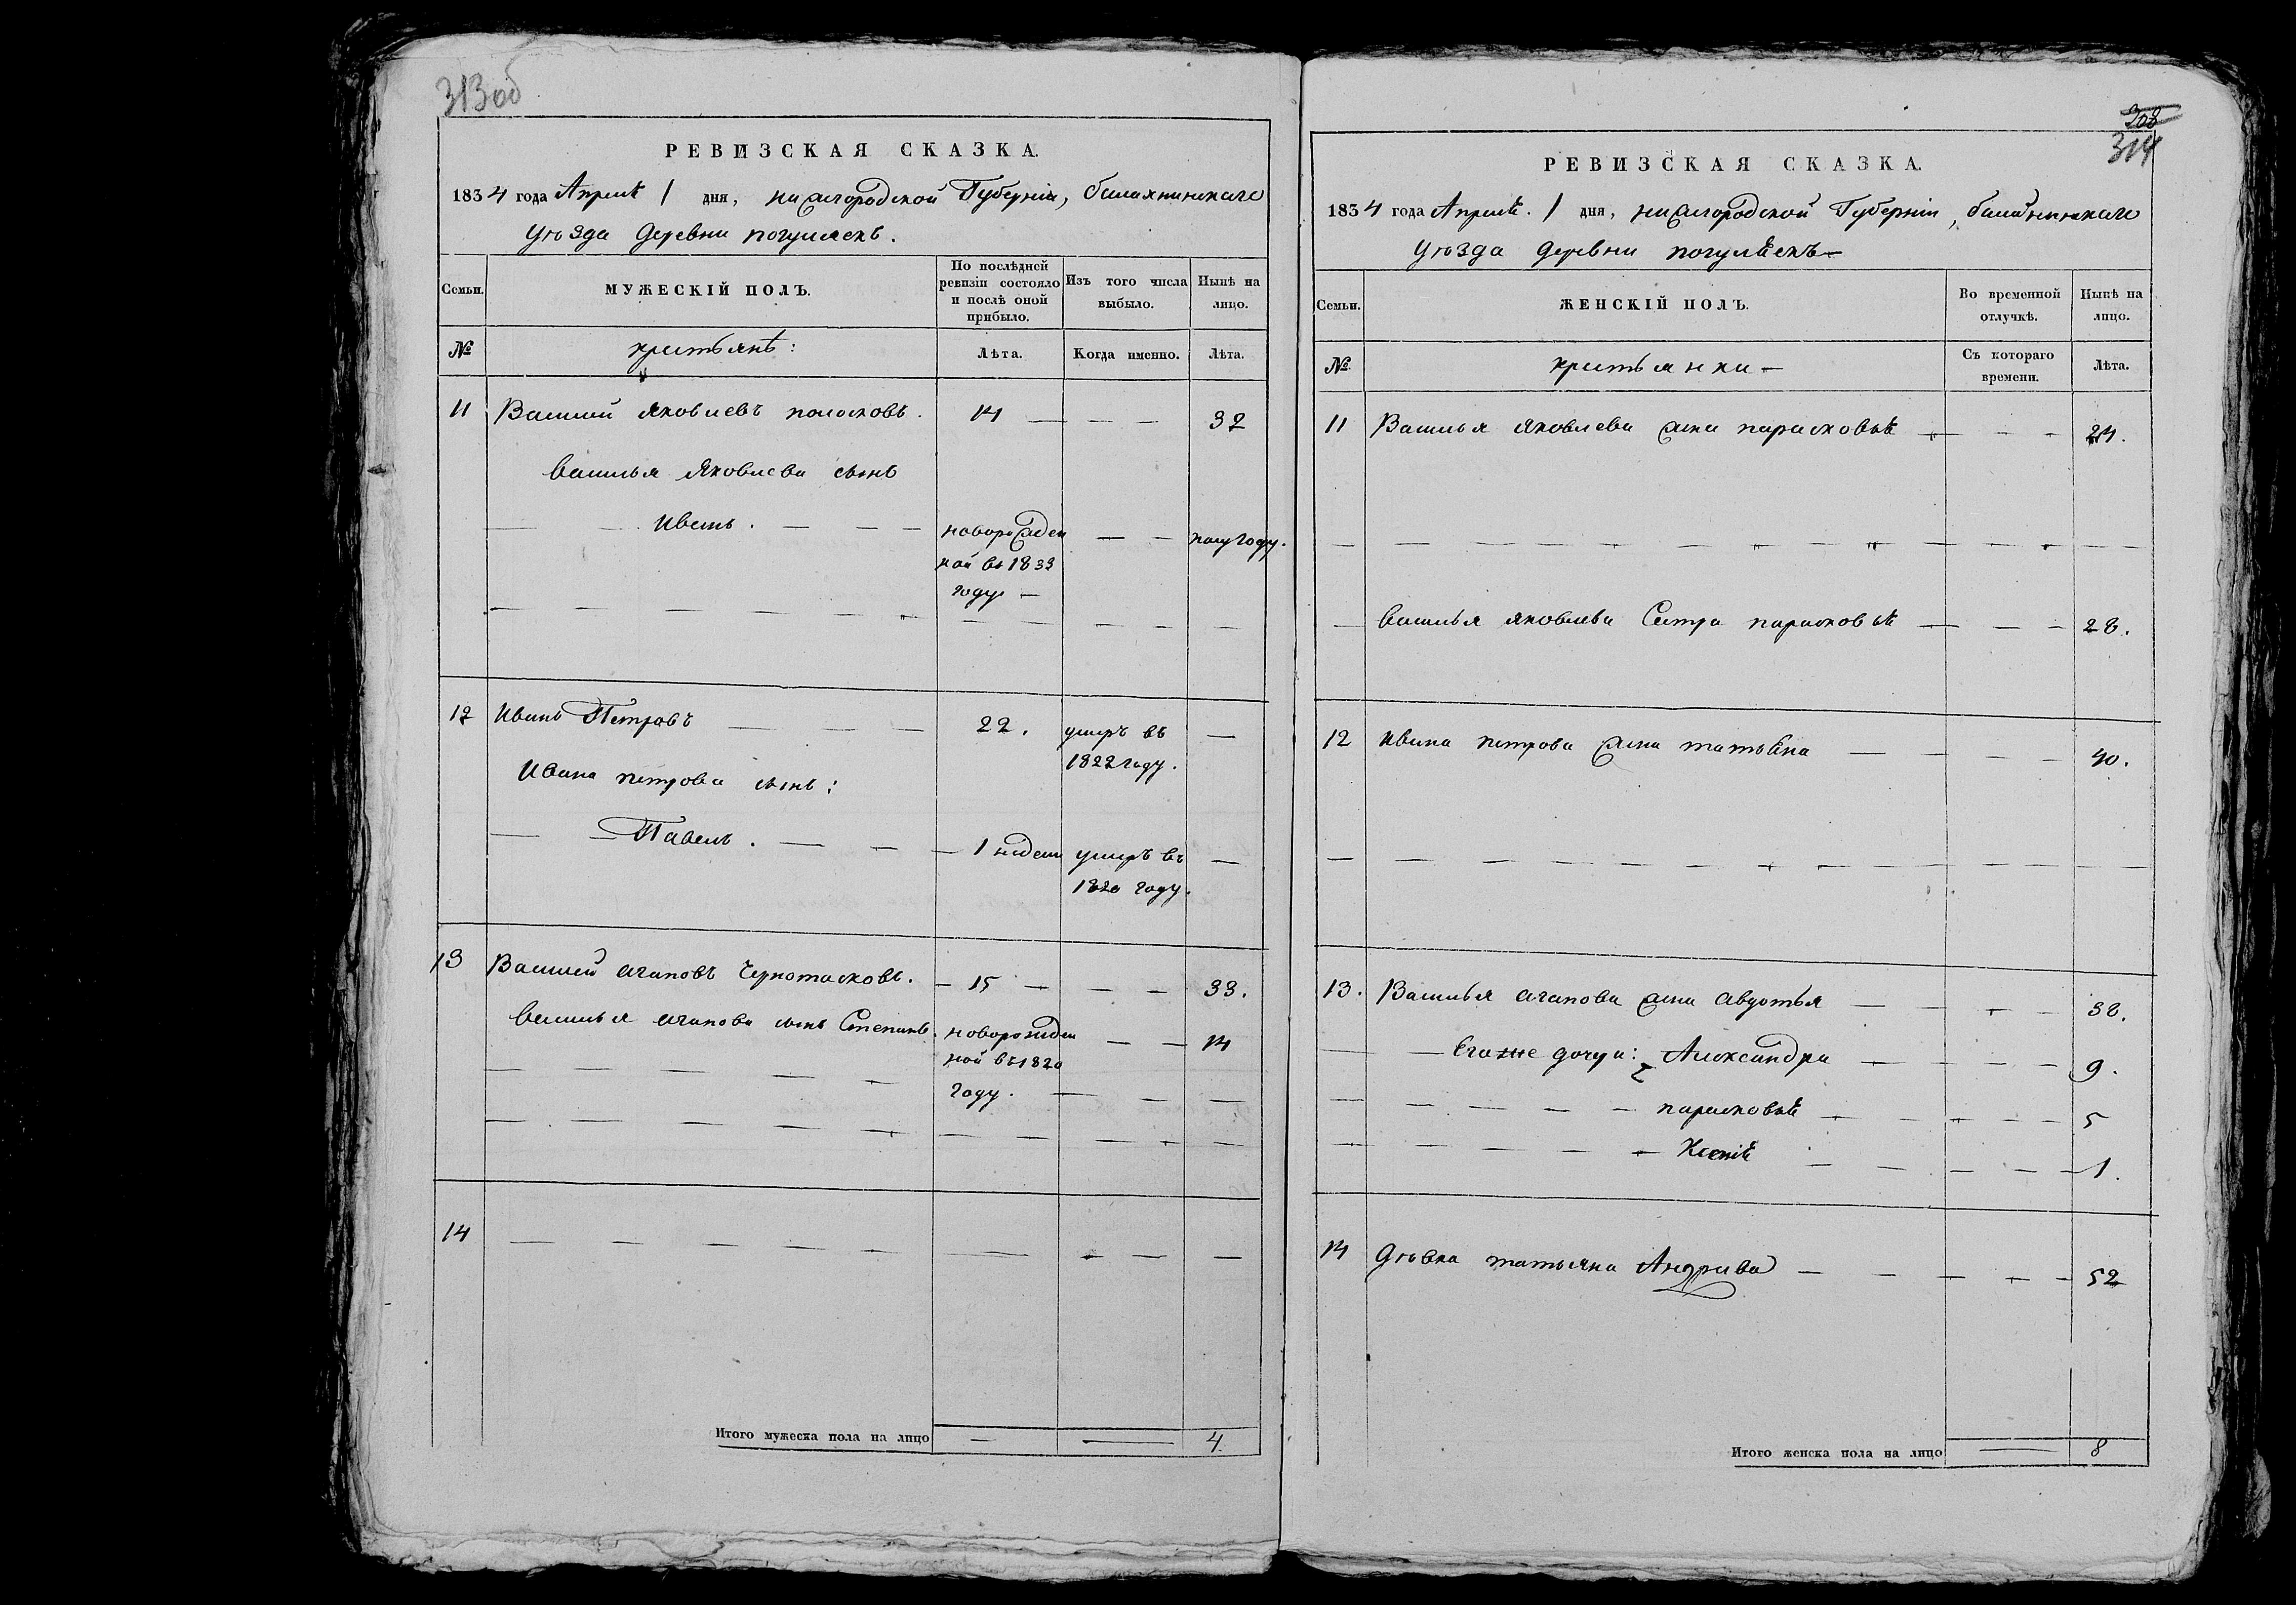 313об
РЕВИЗСКАЯ СКАЗКА.
1834 года Апреля 1 дня, нижегородской Губернiи, балахнинскаго
Уѣзда деревни погуляекъ.
Семьи.
МУЖЕСКIЙ ПОЛЪ.
По послѣдней ревизiи состояло и послѣ оной прибыло.
Изъ того числа выбыло.
Нынѣ на лицо.
№
крестьянѣ:
Лѣта.
Когда именно.
Лѣта.
11 Василий Яковлевъ полосковъ. 14 — — — 32
Василья Яковлева сынъ
— — Иванъ. — — — новорожден — — полугоду.
ной въ 1833
году —
12 Иванъ Петровъ — — — 22. умеръ въ —
1822 году.
Ивана петрова сынъ:
— — Павелъ. — — — 1 недели умеръ въ —
1820 году.
13 Василий агаповъ Чернотасковъ. — 15 — — — 33.
Василья агапова сынъ Степанъ. новорожден — — 14
ной въ 1820
году. — — —
14 — — — — — — — — —
Итого мужеска пола на лицо — — 4
308
314
РЕВИЗСКАЯ СКАЗКА.
1834 года Апреля. 1 дня, нижегородской Губернiи, балахнинскаго
Уѣзда деревни погуляекъ —
Семьи.
ЖЕНСКIЙ ПОЛЪ.
Во временной отлучкѣ.
Нынѣ на лицо.
№
крестьянки —
Съ котораго времени.
Лѣта.
11 Василья Яковлева жена парасковья — — — 24.
— Василья яковлева Сестра парасковья — — — 28.
12 Ивана петрова жена татьяна — — — — 40.
13. Василья агапова жена авдотья — — — — 38.
— — Егоже дочери: Александра — — — — 9.
— — — — — парасковья — — — — 5
— — — — — Ксенiя — — — — 1.
14 дѣвка татьяна Андриева — — — — — 52
Итого женска пола на лицо — 8